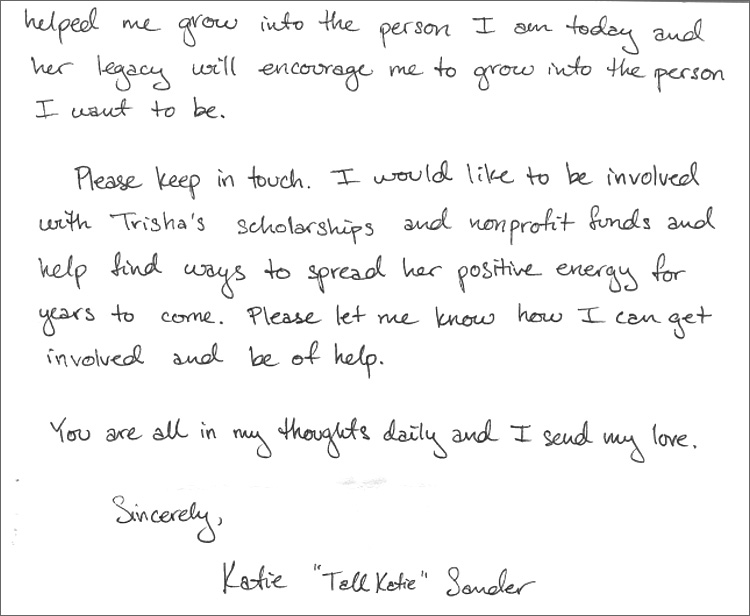 helped me grow into the person I am today and
her legacy will encourage me to grow into the person
I want to be.
Please keep in touch. I would like to be involved
with Trisha's scholarships and nonprofit funds and
help find ways to spread her positive energy for
years to come. Please let me know how I can get
involved and be of help.
You are all in my thoughts daily and I send my love.
Sincerely,
Katie "Tall Katie" Sander